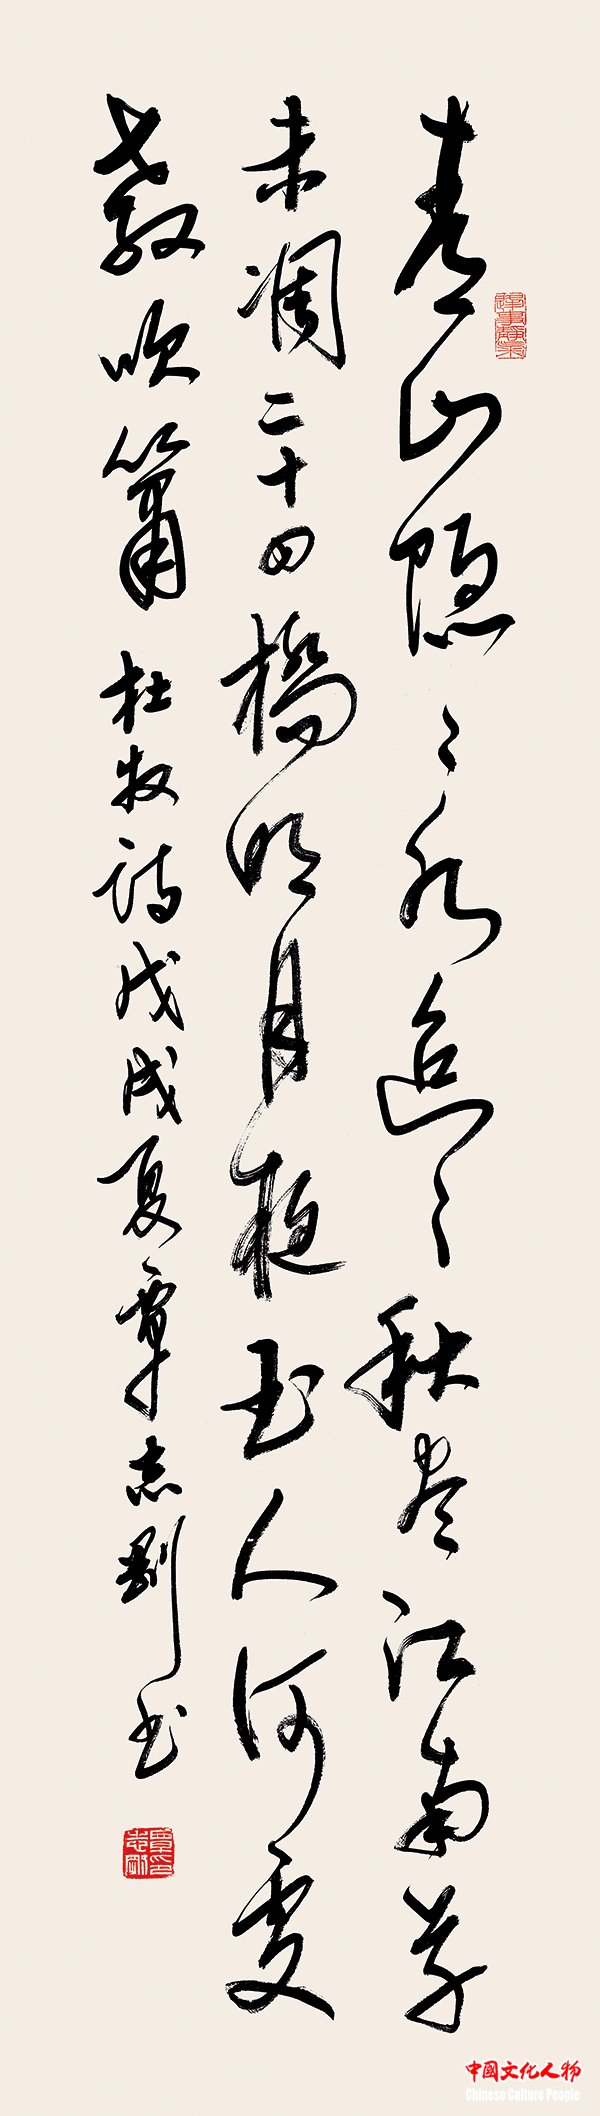 青山隐〻水迢〻秋尽江南草
未凋二十四橋明月夜玉人何處
教吹簫 杜牧詩戊戌夏覃志剛书
覃志剛印
中國文化人物
Chinese Culture People